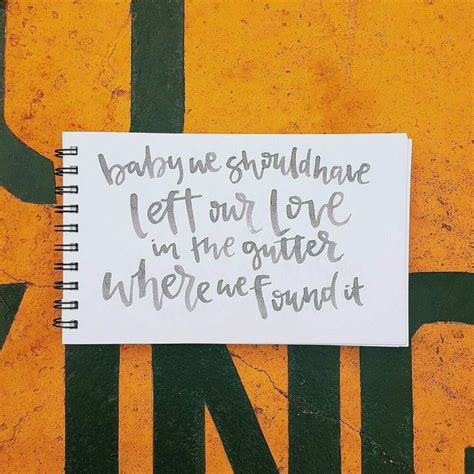 baby we should have
left our love
in the gutter
where we found it